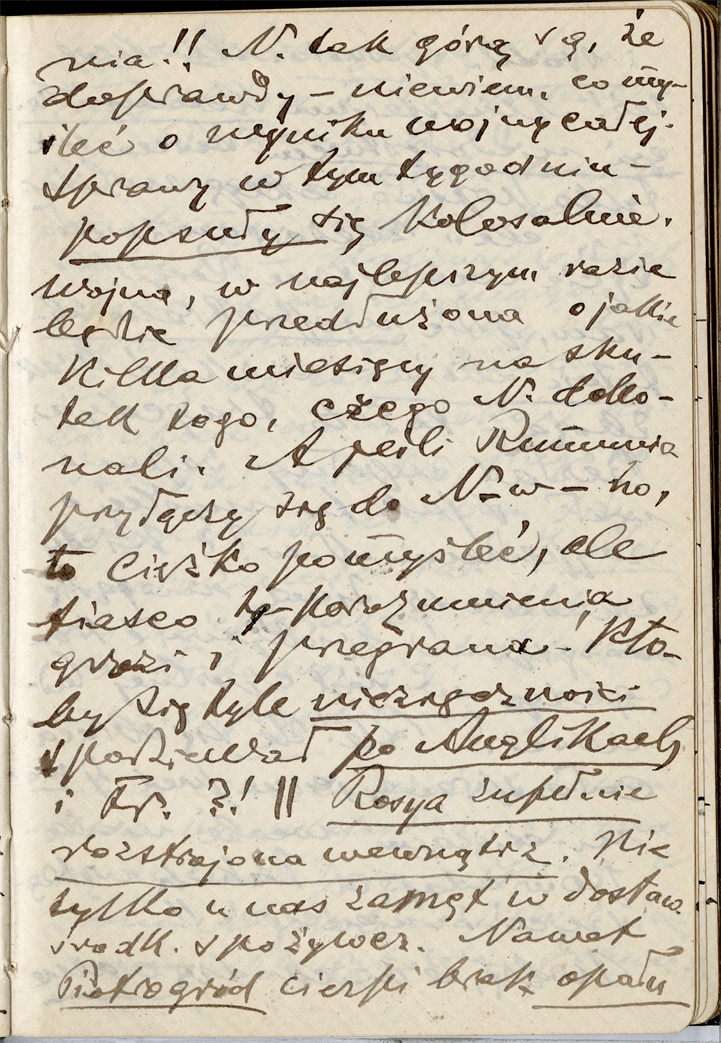 nia!! N. tak górą są, że
doprawdy – niewiem, co my-
śleć o wyniku wojny całej.
Sprawy w tym tygodniu –
popsuły się kolosalnie.
Wojna, w najlepszym razie
będzie przedłużona o jakie
kilka miesięcy na sku-
tek tego, czego N. doko-
nali. A jeśli Rumunia
przyłączy się do N-w – no,
to ciężko pomyśleć, ale
fiasco porozumienia
grozi i przegrana! Kto-
by się tyle niezręczności
spodziewał po Anglikach
i Fr. ?! || Rosya zupełnie
rozstrojona wewnątrz. Nie
tylko u nas zamęt w dostaw.
środk. spożywcz. Nawet
Piotrogród cierpi brak opału